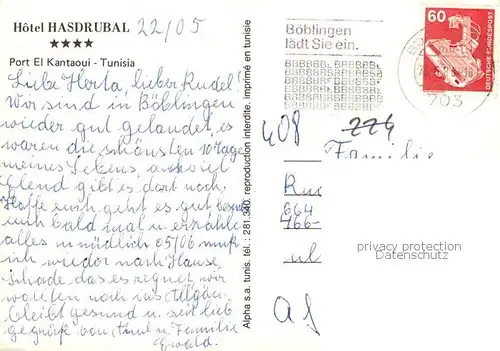 Hôtel HASDRUBAL
★★★★
22/05
Port El Kantaoui - Tunisia
Liebe Herta, lieber Rudel!
Wir sind in Böblingen
wieder gut gelandet, es
waren die schönsten 10 Tage
meines Lebens,
Elend gibt es dort noch.
Hoffe euch geht es gut
euch bald mal u. erzähle
alles mündlich 05/06 muß
ich wieder nach Hause,
Schade das es regnet, wir
wollten noch ins Allgäu
bleibt gesund u. seit lieb
gegrüßt von u Familie
Ewald.
Alpha s.a. tunis. tél. : 281.340. reproduction interdite. imprimé en tunisie
Böblingen
lädt Sie ein.
60
DEUTSCHE BUNDESPOST
703
408
224
Familie
664
766-
privacy protection
Datenschutz